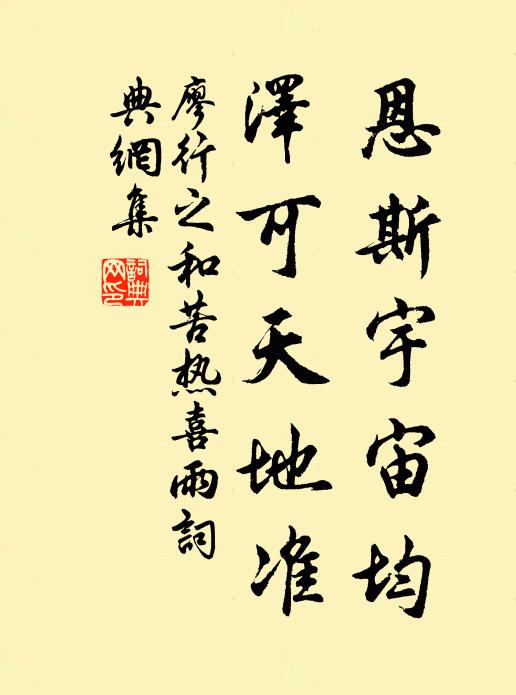 恩斯宇宙均
澤可天地准
廖行之和苦热喜雨詞
典網集
詞典网印